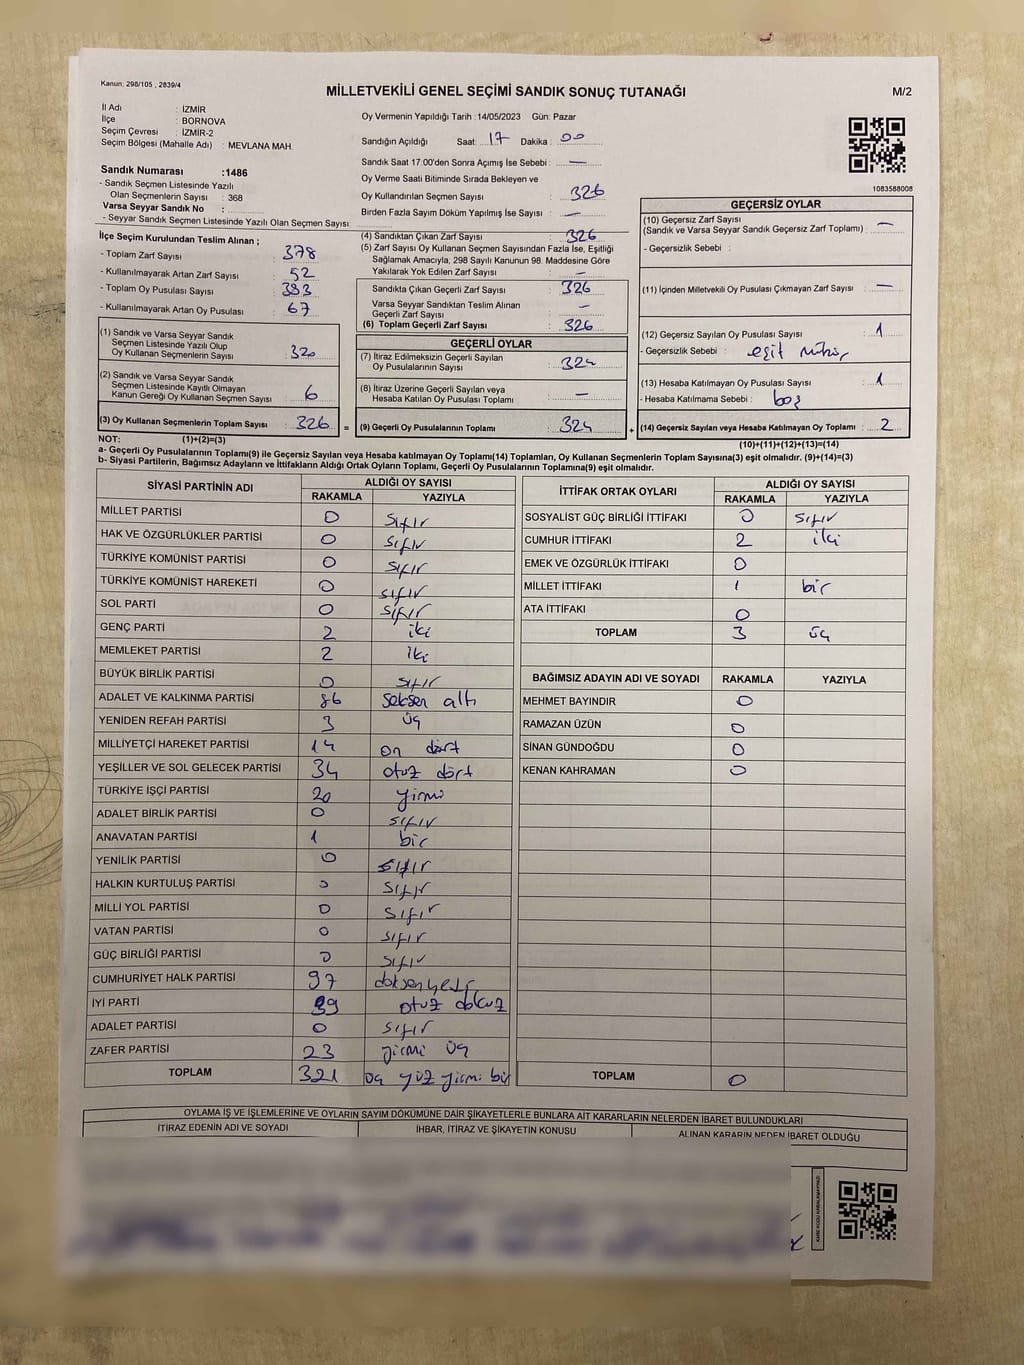 Kanun: 298/105 , 2839/4
MİLLETVEKİLİ GENEL SEÇİMİ SANDIK SONUÇ TUTANAĞI
M/2
İl Adı : İZMİR
İlçe : BORNOVA
Seçim Çevresi : İZMİR-2
Seçim Bölgesi (Mahalle Adı) : MEVLANA MAH.
Sandık Numarası :1486
- Sandık Seçmen Listesinde Yazılı
Olan Seçmenlerin Sayısı : 368
Varsa Seyyar Sandık No :
- Seyyar Sandık Seçmen Listesinde Yazılı Olan Seçmen Sayısı
İlçe Seçim Kurulundan Teslim Alınan ;
- Toplam Zarf Sayısı : 378
- Kullanılmayarak Artan Zarf Sayısı : 52
- Toplam Oy Pusulası Sayısı : 393
- Kullanılmayarak Artan Oy Pusulası : 67
(1) Sandık ve Varsa Seyyar Sandık
Seçmen Listesinde Yazılı Olup
Oy Kullanan Seçmenlerin Sayısı : 320
(2) Sandık ve Varsa Seyyar Sandık
Seçmen Listesinde Kayıtlı Olmayan
Kanun Gereği Oy Kullanan Seçmen Sayısı : 6
(3) Oy Kullanan Seçmenlerin Toplam Sayısı : 326 =
Oy Vermenin Yapıldığı Tarih : 14/05/2023 Gün: Pazar
Sandığın Açıldığı Saat: 17 Dakika : 00
Sandık Saat 17.00'den Sonra Açımış İse Sebebi : —
Oy Verme Saati Bitiminde Sırada Bekleyen ve
Oy Kullandırılan Seçmen Sayısı : 326
Birden Fazla Sayım Döküm Yapılmış İse Sayısı : —
(4) Sandıktan Çıkan Zarf Sayısı : 326
(5) Zarf Sayısı Oy Kullanan Seçmen Sayısından Fazla İse, Eşitliği
Sağlamak Amacıyla, 298 Sayılı Kanunun 98. Maddesine Göre
Yakılarak Yok Edilen Zarf Sayısı : —
Sandıkta Çıkan Geçerli Zarf Sayısı : 326
Varsa Seyyar Sandıktan Teslim Alınan
Geçerli Zarf Sayısı : —
(6) Toplam Geçerli Zarf Sayısı : 326
GEÇERLİ OYLAR
(7) İtiraz Edilmeksizin Geçerli Sayılan
Oy Pusulalarının Sayısı : 324
(8) İtiraz Üzerine Geçerli Sayılan veya
Hesaba Katılan Oy Pusulası Toplamı : —
(9) Geçerli Oy Pusulalarının Toplamı : 324 +
1083588008
GEÇERSİZ OYLAR
(10) Geçersiz Zarf Sayısı
(Sandık ve Varsa Seyyar Sandık Geçersiz Zarf Toplamı) : —
- Geçersizlik Sebebi :
(11) İçinden Milletvekili Oy Pusulası Çıkmayan Zarf Sayısı : —
(12) Geçersiz Sayılan Oy Pusulası Sayısı : 1
- Geçersizlik Sebebi :
(13) Hesaba Katılmayan Oy Pusulası Sayısı : 1
- Hesaba Katılmama Sebebi : boş
(14) Geçersiz Sayılan veya Hesaba Katılmayan Oy Toplamı : 2
NOT: (1)+(2)=(3)
(10)+(11)+(12)+(13)=(14)
a- Geçerli Oy Pusulalarının Toplamı(9) ile Geçersiz Sayılan veya Hesaba katılmayan Oy Toplamı(14) Toplamları, Oy Kullanan Seçmenlerin Toplam Sayısına(3) eşit olmalıdır. (9)+(14)=(3)
b- Siyasi Partilerin, Bağımsız Adayların ve İttifakların Aldığı Ortak Oyların Toplamı, Geçerli Oy Pusulalarının Toplamına(9) eşit olmalıdır.
SİYASİ PARTİNİN ADI ALDIĞI OY SAYISI
RAKAMLA YAZIYLA
MİLLET PARTİSİ 0 sıfır
HAK VE ÖZGÜRLÜKLER PARTİSİ 0 sıfır
TÜRKİYE KOMÜNİST PARTİSİ 0 sıfır
TÜRKİYE KOMÜNİST HAREKETİ 0 sıfır
SOL PARTİ 0 sıfır
GENÇ PARTİ 2 iki
MEMLEKET PARTİSİ 2 iki
BÜYÜK BİRLİK PARTİSİ 0 sıfır
ADALET VE KALKINMA PARTİSİ 86 seksen altı
YENİDEN REFAH PARTİSİ 3 üç
MİLLİYETÇİ HAREKET PARTİSİ 14 on dört
YEŞİLLER VE SOL GELECEK PARTİSİ 34 otuz dört
TÜRKİYE İŞÇİ PARTİSİ 20 yirmi
ADALET BİRLİK PARTİSİ 0 sıfır
ANAVATAN PARTİSİ 1 bir
YENİLİK PARTİSİ 0 sıfır
HALKIN KURTULUŞ PARTİSİ 0 sıfır
MİLLİ YOL PARTİSİ 0 sıfır
VATAN PARTİSİ 0 sıfır
GÜÇ BİRLİĞİ PARTİSİ 0 sıfır
CUMHURİYET HALK PARTİSİ 97 doksanyedi
İYİ PARTİ 39 otuz dokuz
ADALET PARTİSİ 0 sıfır
ZAFER PARTİSİ 23 yirmi üç
TOPLAM 321 üç yüz yirmi bir
İTTİFAK ORTAK OYLARI ALDIĞI OY SAYISI
RAKAMLA YAZIYLA
SOSYALİST GÜÇ BİRLİĞİ İTTİFAKI 0 sıfır
CUMHUR İTTİFAKI 2 iki
EMEK VE ÖZGÜRLÜK İTTİFAKI 0
MİLLET İTTİFAKI 1 bir
ATA İTTİFAKI 0
TOPLAM 3 üç
BAĞIMSIZ ADAYIN ADI VE SOYADI RAKAMLA YAZIYLA
MEHMET BAYINDIR 0
RAMAZAN ÜZÜN 0
SİNAN GÜNDOĞDU 0
KENAN KAHRAMAN 0
TOPLAM 0
OYLAMA İŞ VE İŞLEMLERİNE VE OYLARIN SAYIM DÖKÜMÜNE DAİR ŞİKAYETLERLE BUNLARA AİT KARARLARIN NELERDEN İBARET BULUNDUKLARI
İTİRAZ EDENİN ADI VE SOYADI İHBAR, İTİRAZ VE ŞİKAYETİN KONUSU ALINAN KARARIN NEDEN İBARET OLDUĞU